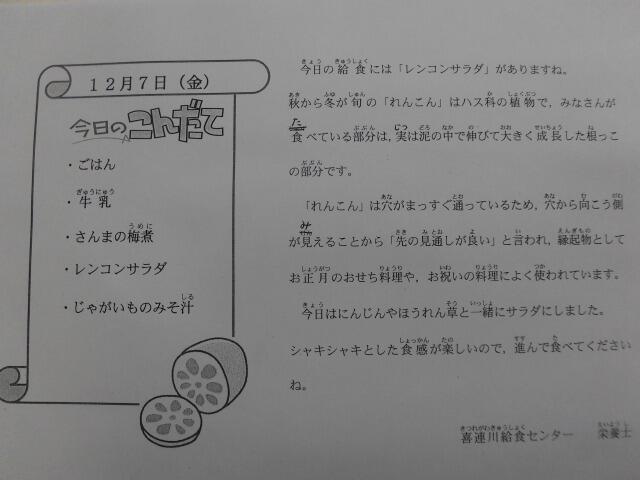 12月7日（金）
今日のこんだて
・ごはん
・牛乳
・さんまの梅煮
・レンコンサラダ
・じゃがいものみそ汁
今日の給食には「レンコンサラダ」がありますね。
秋から冬が旬の「れんこん」はハス科の植物で，みなさんが
食べている部分は，実は泥の中で伸びて大きく成長した根っこ
の部分です。
「れんこん」は穴がまっすぐ通っているため，穴から向こう側
が見えることから「先の見通しが良い」と言われ，縁起物として
お正月のおせち料理や，お祝いの料理によく使われています。
今日はにんじんやほうれん草と一緒にサラダにしました。
シャキシャキとした食感が楽しいので，進んで食べてください
ね。
喜連川給食センター　栄養士